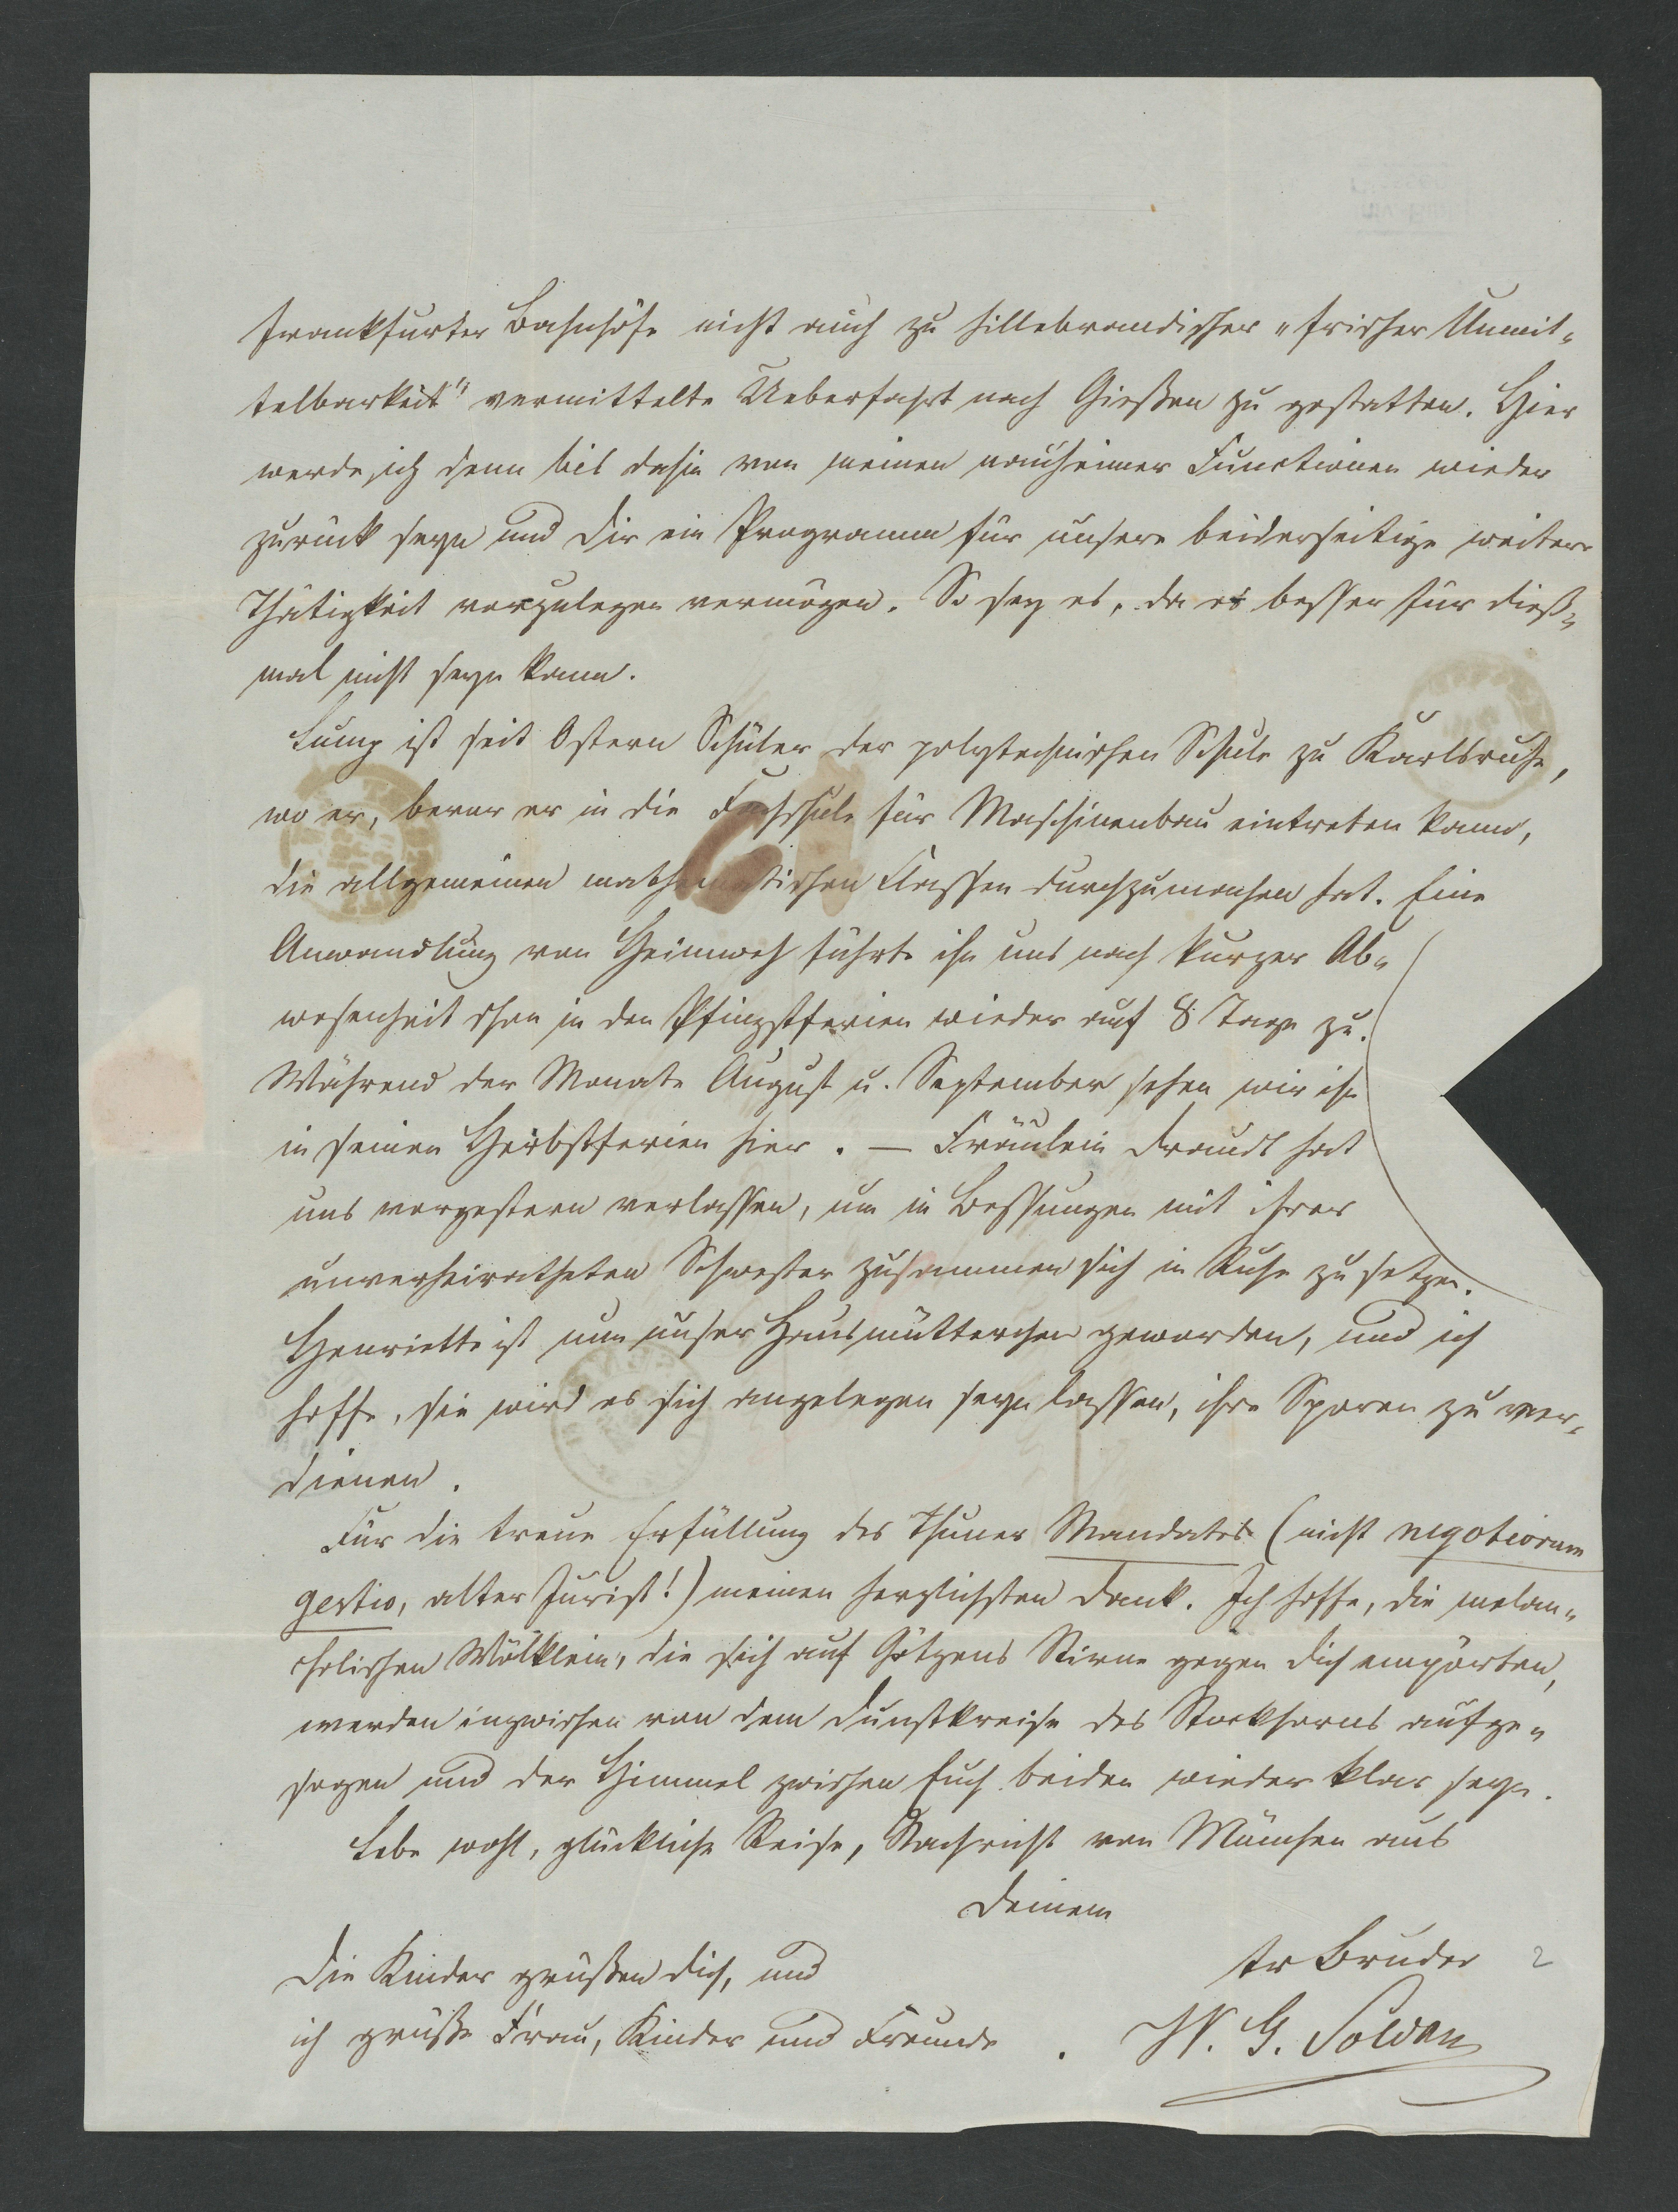 Frankfurter Bahnhöfe nicht auch zu hillebrandischer „frischer Unmit„
telbarkeit" vermittelte Ueberfahrt nach Gießen zu gestatten. Hier
werde ich denn bis dahin von meinen nauheimer Functionen wieder
zurück seyn und Dir ein Programm für unsere beiderseitige weitere
Thätigkeit vorzulegen vermögen. So sey es, da es besser für dieß„
mal nicht seyn kann.
ist seit Ostern Schüler der polytechnischen Schule zu Karlsruhe,
wo er, bevor er in die Fachschule für Maschinenbau eintreten kann,
die allgemeinen mathematischen Classen durchzumachen hat. Eine
Anwandlung von Heimweh führte ihn uns nach kurzer Ab„
wesenheit schon in den Pfingstferien wieder auf 8 Tage zu.
Während der Monate August u. September sehen wir ihn
in seinen Herbstferien hier. — Fräulein Draudt hat
uns vorgestern verlassen, um in Bessungen mit ihrer
unverheiratheten Schwester zusammen sich in Ruhe zu setzen.
Henriette ist nun unser Hausmütterchen geworden, und ich
hoffe, sie wird es sich angelegen seyn lassen, ihre Sporen zu ver„
dienen.
Für die treue Erfüllung des Thuner Mandates (nicht negotiorum
gestio, alter Jurist!) meinen herzlichsten Dank. Ich hoffe, die melan„
cholischen Wölklein, die sich auf Götzens Stirne gegen Dich empörten,
werden inzwischen von dem Dunstkreise des Stockhorns aufge„
sogen und der Himmel zwischen Euch beiden wieder klar seyn.
Lebe wohl, glückliche Reise, Nachricht von München aus
Deinem
Die Kinder grüßen Dich, und
tr Bruder
ich grüße Frau, Kinder und Freunde.
W. G. Soldan